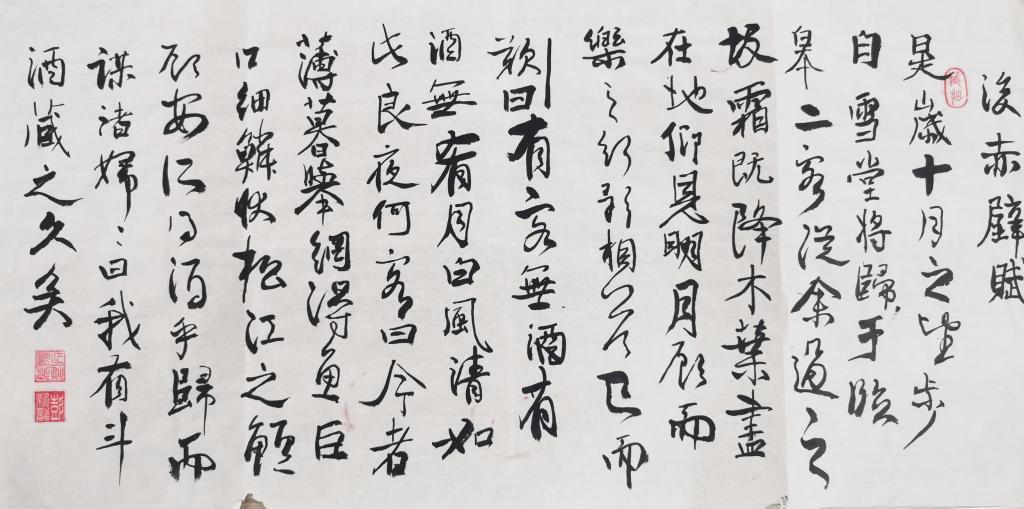 後赤壁賦
是歲十月之望步
自雪堂將歸于臨
皋二客從余過之
坂霜既降木葉盡
在地仰見明月顧而
樂之行歌相答已而
歎曰有客無酒有
酒無肴月白風清如
此良夜何客曰今者
薄暮舉網得魚巨
口細鱗狀松江之鱸
顧安所得酒乎歸而
謀諸婦〻曰我有斗
酒藏之久矣